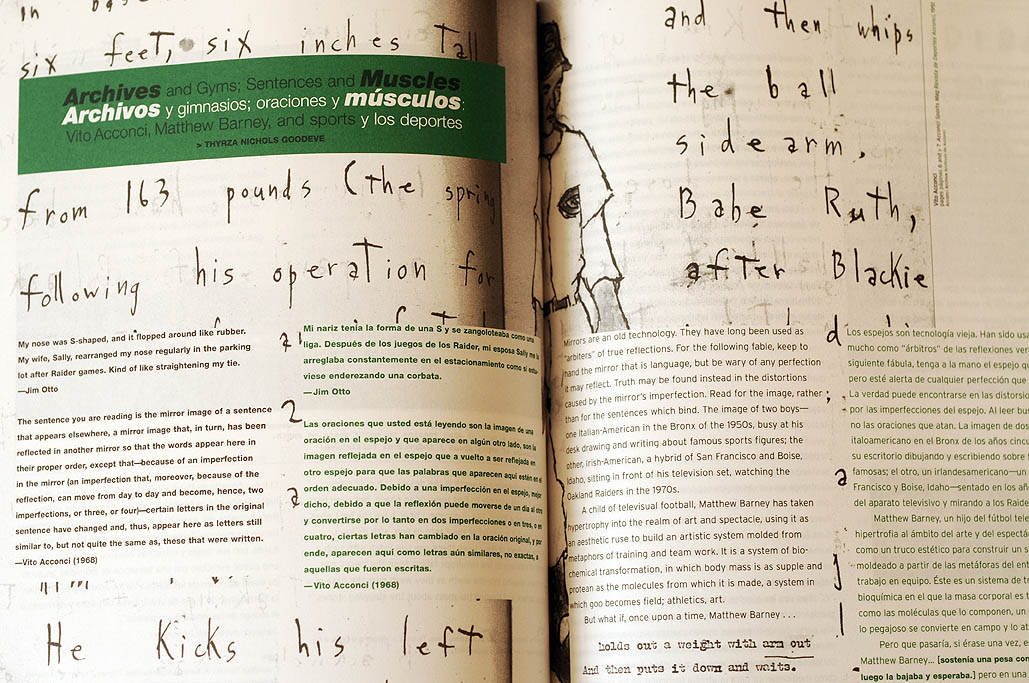 six feet, six inches Tall
Archives and Gyms; Sentences and Muscles
Archivos y gimnasios; oraciones y músculos:
Vito Acconci, Matthew Barney, and sports y los deportes
> THYRZA NICHOLS GOODEVE
from 163 pounds (the spring
following his operation for
My nose was S-shaped, and it flopped around like rubber.
My wife, Sally, rearranged my nose regularly in the parking
lot after Raider games. Kind of like straightening my tie.
—Jim Otto
The sentence you are reading is the mirror image of a sentence
that appears elsewhere, a mirror image that, in turn, has been
reflected in another mirror so that the words appear here in
their proper order, except that—because of an imperfection
in the mirror (an imperfection that, moreover, because of the
reflection, can move from day to day and become, hence, two
imperfections, or three, or four)—certain letters in the original
sentence have changed and, thus, appear here as letters still
similar to, but not quite the same as, these that were written.
—Vito Acconci (1968)
Mi nariz tenía la forma de una S y se zangoloteaba como una
liga. Después de los juegos de los Raider, mi esposa Sally me la
arreglaba constantemente en el estacionamiento como si estu-
viese enderezando una corbata.
—Jim Otto
2
Las oraciones que usted está leyendo son la imagen de una
oración en el espejo y que aparece en algún otro lado, son la
imagen reflejada en el espejo que a vuelto a ser reflejada en
otro espejo para que las palabras que aparecen aquí estén en el
orden adecuado. Debido a una imperfección en el espejo, mejor
dicho, debido a que la reflexión puede moverse de un día al otro
y convertirse por lo tanto en dos imperfecciones o en tres, o en
cuatro, ciertas letras han cambiado en la oración original, y por
ende, aparecen aquí como letras aún similares, no exactas, a
aquellas que fueron escritas.
—Vito Acconci (1968)
He Kicks his left
and then whips
the ball
side arm.
Babe Ruth,
after Blackie
Mirrors are an old technology. They have long been used as
"arbiters" of true reflections. For the following fable, keep to
hand the mirror that is language, but be wary of any perfection
it may reflect. Truth may be found instead in the distortions
caused by the mirror's imperfection. Read for the image, rather
than for the sentences which bind. The image of two boys—
one Italian-American in the Bronx of the 1950s, busy at his
desk drawing and writing about famous sports figures; the
other, Irish-American, a hybrid of San Francisco and Boise,
Idaho, sitting in front of his television set, watching the
Oakland Raiders in the 1970s.
A child of televisual football, Matthew Barney has taken
hypertrophy into the realm of art and spectacle, using it as
an aesthetic ruse to build an artistic system molded from
metaphors of training and team work. It is a system of bio-
chemical transformation, in which body mass is as supple and
protean as the molecules from which it is made, a system in
which goo becomes field; athletics, art.
But what if, once upon a time, Matthew Barney . . .
holds out a weight with arm out
And then puts it down and waits.
Los espejos son tecnología vieja. Han sido us
mucho como "árbitros" de las reflexiones ver
siguiente fábula, tenga a la mano el espejo qu
pero esté alerta de cualquier perfección que
La verdad puede encontrarse en las distorsio
por las imperfecciones del espejo. Al leer bu
no las oraciones que atan. La imagen de dos
italoamericano en el Bronx de los años cinc
su escritorio dibujando y escribiendo sobre
famosas; el otro, un irlandesamericano—un
Francisco y Boise, Idaho—sentado en los año
del aparato televisivo y mirando a los Raide
Matthew Barney, un hijo del fútbol tele
hipertrofia al ámbito del arte y del espectác
como un truco estético para construir un s
moldeado a partir de las metáforas del ent
trabajo en equipo. Éste es un sistema de t
bioquímica en el que la masa corporal es t
como las moléculas que lo componen, un
lo pegajoso se convierte en campo y lo at
Pero que pasaría, si érase una vez, e
Matthew Barney... [sostenía una pesa con
luego la bajaba y esperaba.] pero en una